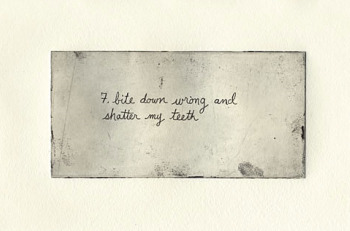 7. bite down wrong and
shatter my teeth